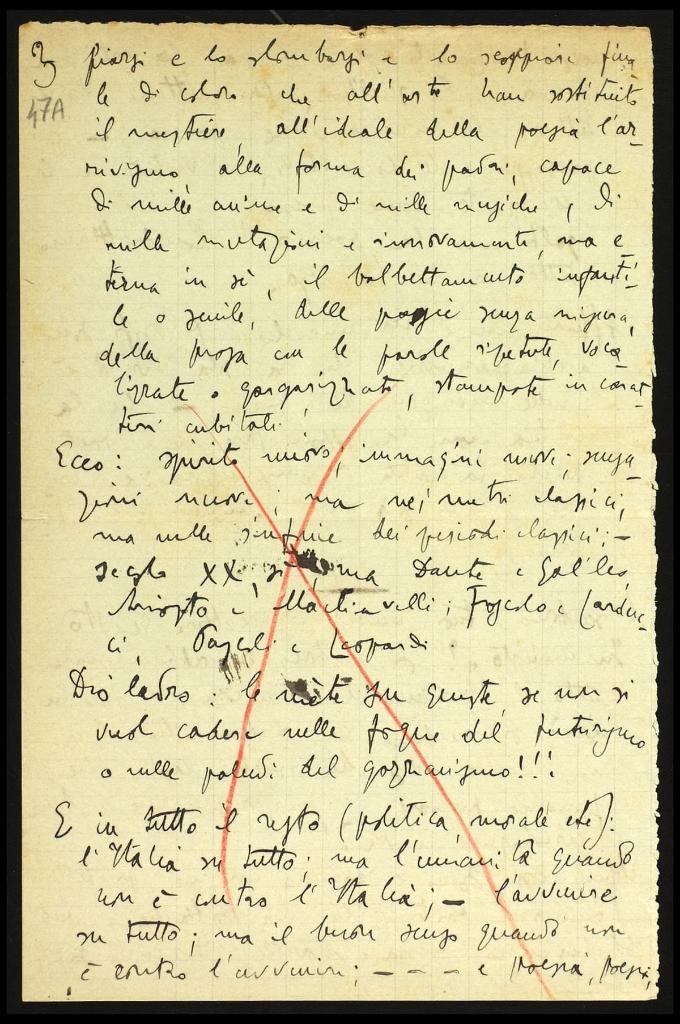 3 e lo e lo scoppiare fina
47A
le di colore che all'arte han sostituito
il mestiere, all'ideale della poesia l'ar-
rivismo alla forma dei padri, capace
di mille anime e di mille musiche, di
mille mutazioni e rinnovamenti, ma e
terna in sè, il balbettamento infanti-
le o senile, delle poesie senza misura,
della prosa con le parole ripetute, voca
lizzate o gargarizzate, stampate in carat
teri cubitali.
Ecco: spirito nuovo; immagini nuove; sensa
zioni nuove; ma nei metri classici,
ma nelle sinfonie dei periodi classici; –
secolo XX, sì, ma Dante e Galileo,
Ariosto e Machiavelli; Foscolo e Carduc-
ci, Pascoli e Leopardi.
Dio ladro: le mète son queste, se non si
vuol cadere nelle fogne del futurismo
o nelle paludi del gozzanismo!!!
E in tutto il resto (politica, morale etc):
l'Italia su tutto; ma l'umanità quando
non è contro l'Italia; – l'avvenire
su tutto; ma il buon senso quando non
è contro l'avvenire; – – – e poesia, poesia,